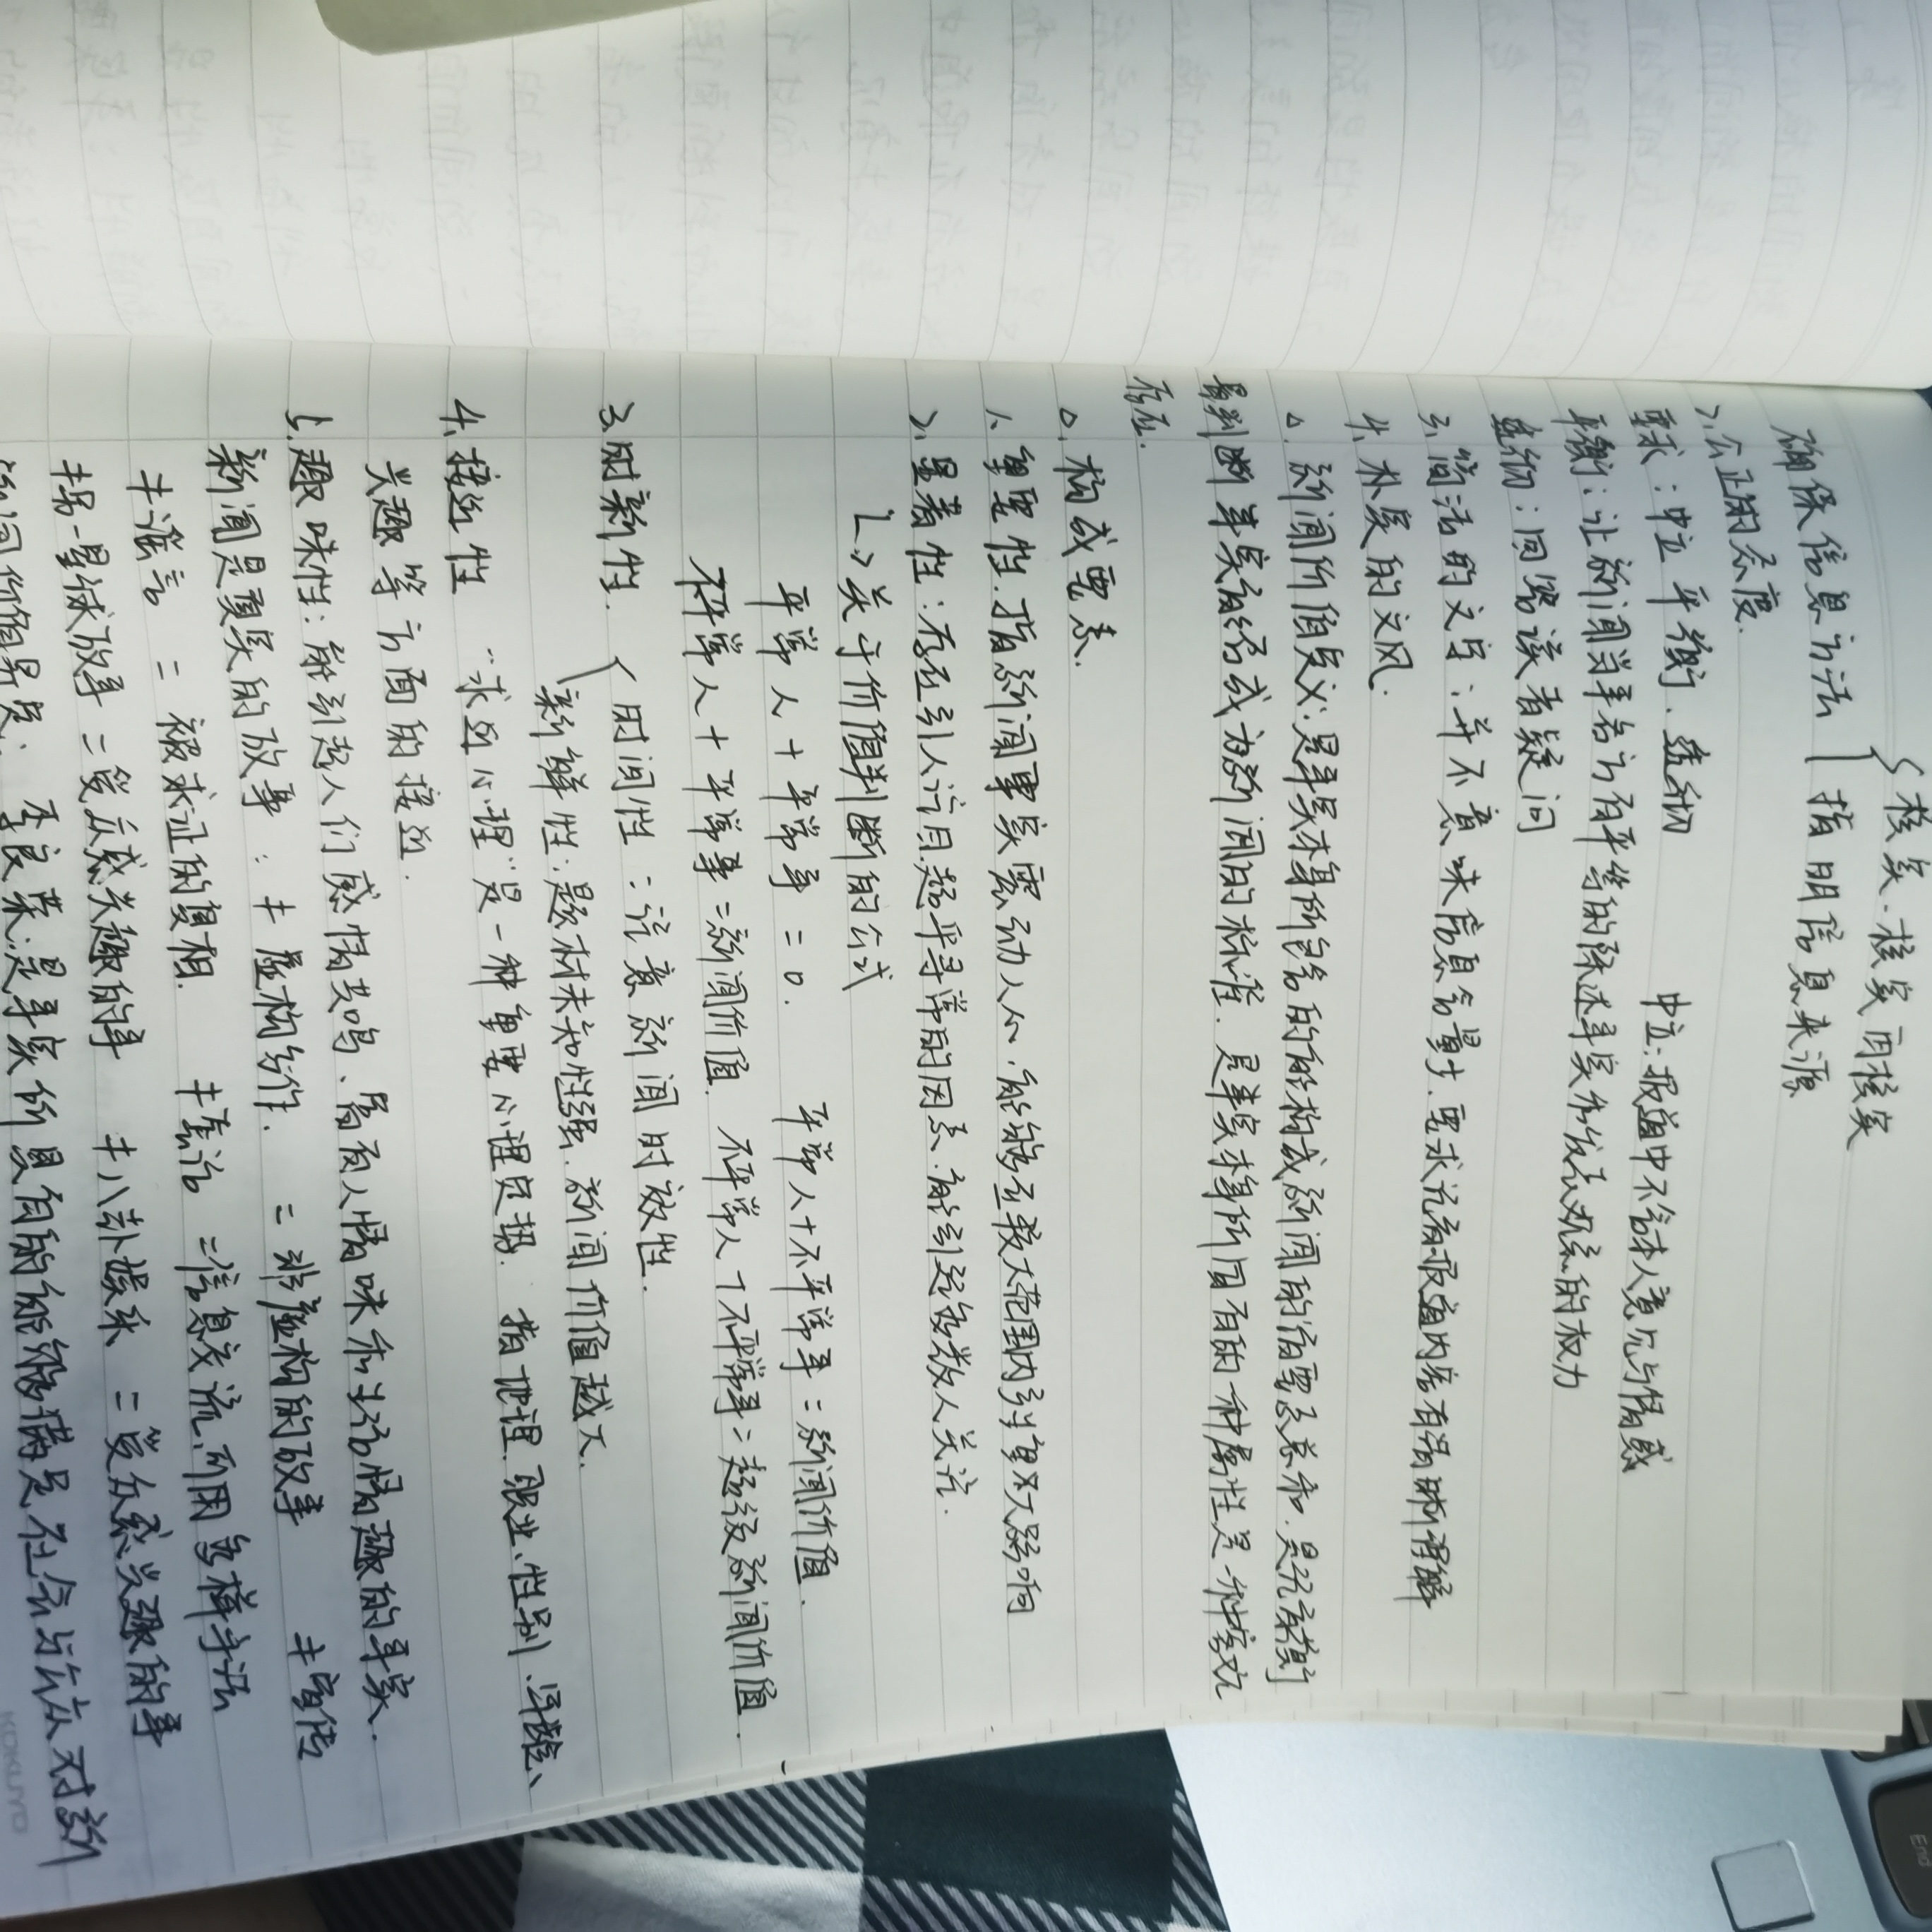 核实.核实再核实
确保信息方法 指明信息来源
2.公正的态度.
要求:中立 平衡、透彻 中立:报道中不含本人意见与情感
平衡:让新闻当事各方有平等的陈述事实和发表观点的权力
透彻:回答读者疑问
3.简洁的文字:并不意味信息含量少.要求让报道内容有清晰理解
4.朴实的文风.
△.新闻价值定义:是事实本身所包含的能构成新闻的诸要素总和.是
判断事实能否成为新闻的标准.是事实本身所固有的一种属性是一种客观
存在.
△.构成要素.
1.重要性.指新闻事实震动人心.能够在较大范围内引起重大影响
2.显著性:存在引人注目超乎寻常的因素.能引起多数人关注.
↳关于价值判断的公式
平常人+平常事=0. 平常人+不平常事=新闻价值.
不平常人+平常事=新闻价值. 不平常人+不平常事=超级新闻价值.
3.时新性. 时间性:注意新闻时效性.
新鲜性:题材未知性强.新闻价值越大.
4.接近性 “求近心理”是一种重要心理定势. 指地理.职业、性别、年龄、
兴趣等方面的接近.
5.趣味性:能引起人们感情共鸣、富有人情味和生活情趣的事实.
新闻是真实的故事:≠虚构创作. =非虚构的故事 ≠宣传
≠谣言 =被求证的真相. ≠言论 =信息交流,可用多样手法
≠另一星球故事=受众感兴趣的事 ≠八卦娱乐 =受众感兴趣的事
新闻价值界定: 是事实所具有的能够满足社会与公众对新
KOKUYO
End